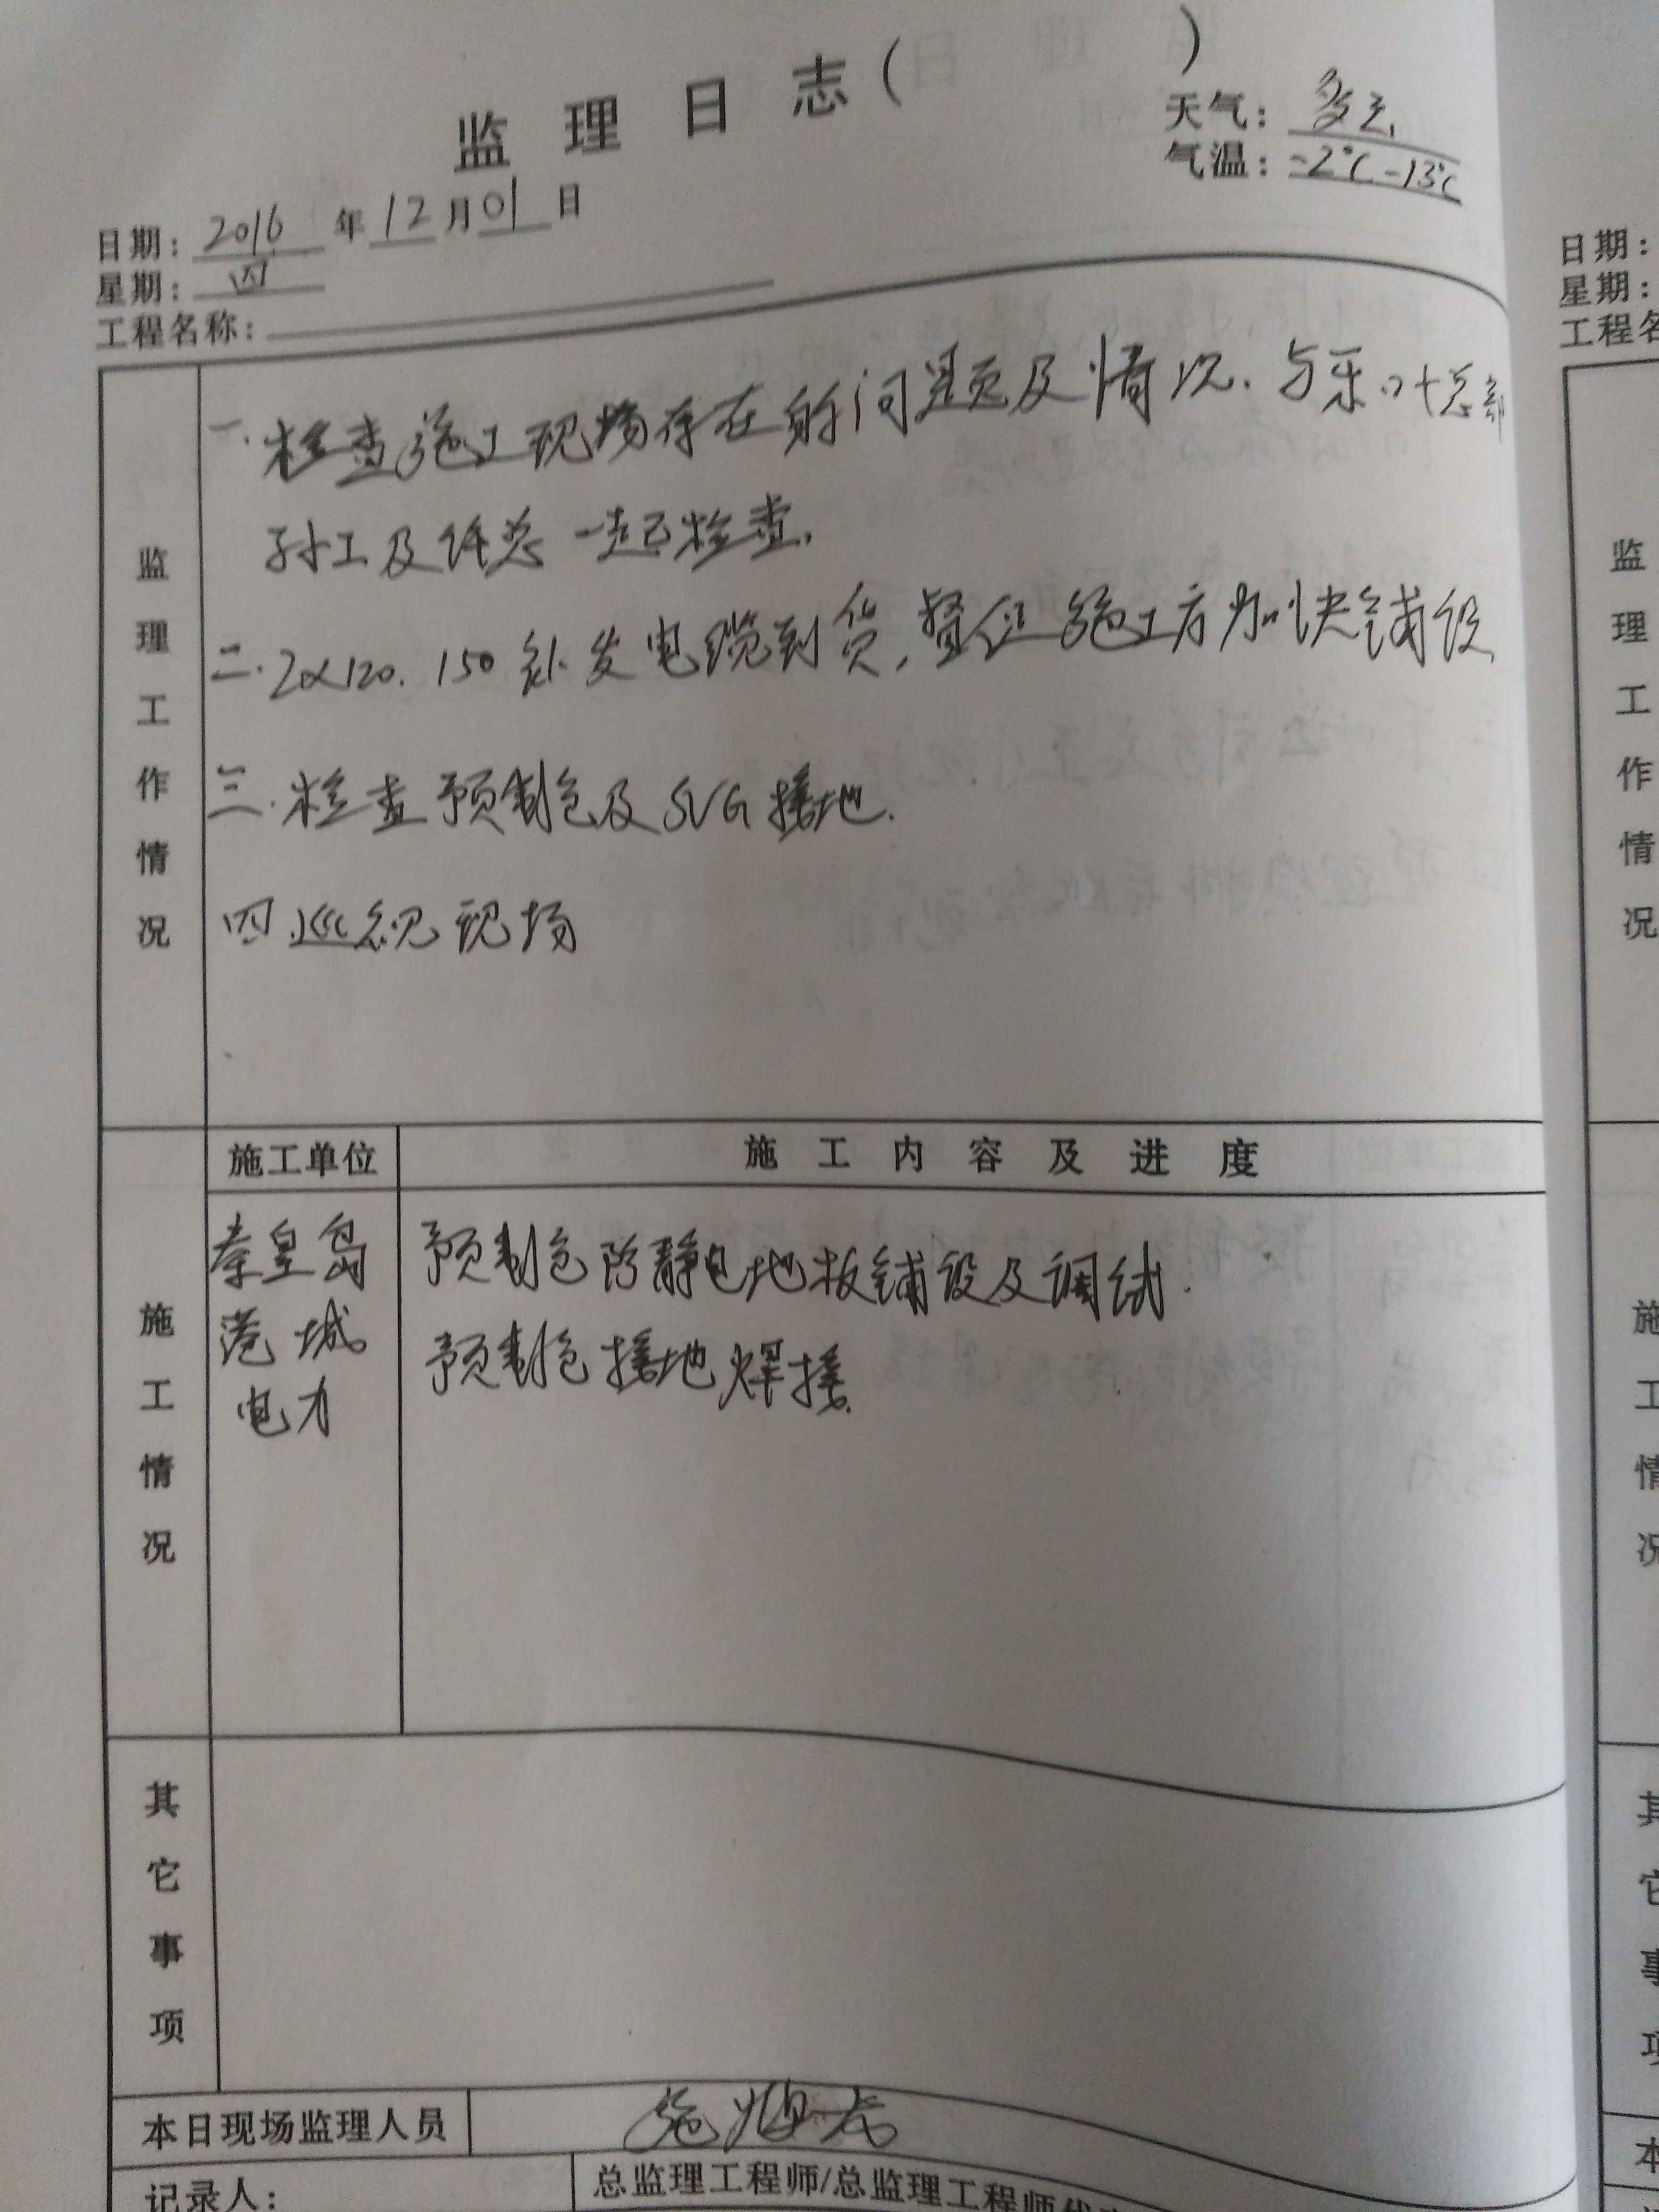 监理日志( )
天气: 多云
气温: -2℃-13℃
日期: 2016 年 12 月 01 日
星期: 四
工程名称:
监理工作情况
一.检查施工现场存在的问题及情况.与乐叶总部
孙工及佟总一起检查.
二.2x120.150补发电缆到货,督促施工方加快铺设
三.检查预制仓及SVG接地.
四.巡视现场
施工情况
施工单位 施工内容及进度
秦皇岛
港城
电力
预制仓防静电地板铺设及调试.
预制仓接地焊接.
其它事项
本日现场监理人员 施
记录人: 总监理工程师/总监理工程师代
日期:
星期:
工程名
监理工作情况
施工情况
其它事项
本